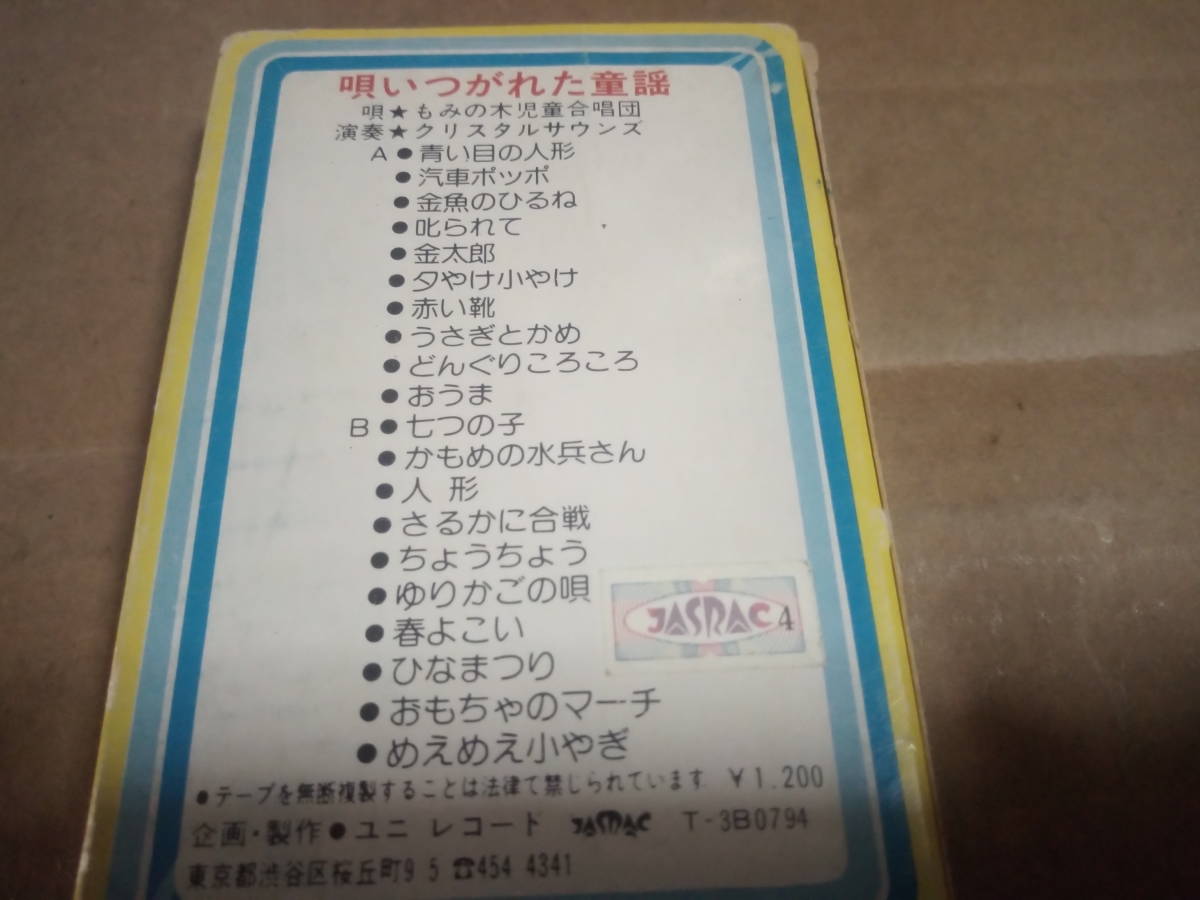 唄いつがれた童謡
唄★もみの木児童合唱団
演奏★クリスタルサウンズ
A●青い目の人形
●汽車ポッポ
●金魚のひるね
●叱られて
●金太郎
●夕やけ小やけ
●赤い靴
●うさぎとかめ
●どんぐりころころ
●おうま
B●七つの子
●かもめの水兵さん
●人形
●さるかに合戦
●ちょうちょう
●ゆりかごの唄
●春よこい
●ひなまつり
●おもちゃのマーチ
●めえめえ小やぎ
JASRAC 4
●テープを無断複製することは法律で禁じられています ¥1.200
企画・製作●ユニ レコード JASRAC T-3B0794
東京都渋谷区桜丘町9 5 ☎454 4341